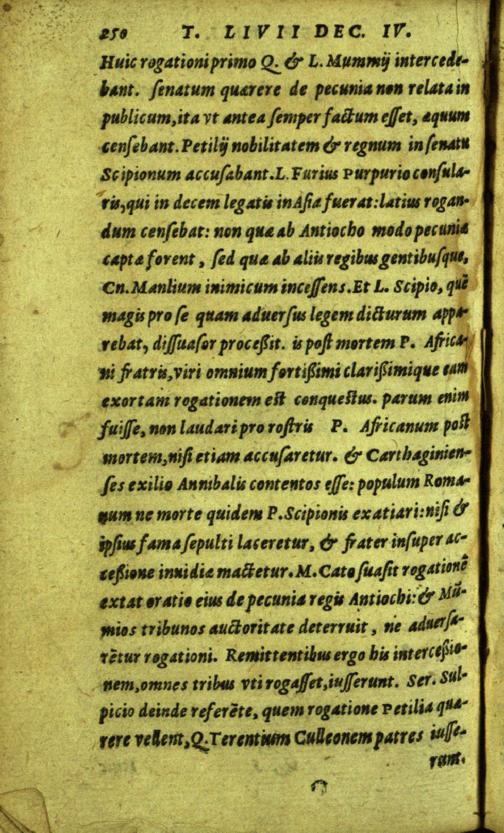 250 T. LIVII DEC. IV.
Huic rogationi primo Q. & L. Mummij intercede-
bant. senatum quærere de pecunia non relata in
publicum, ita vt antea semper factum esset, æquum
censebant. Petilij nobilitatem & regnum in senatu
Scipionum accusabant. L. Furius Purpurio consula-
ris, qui in decem legatis in Asia fuerat: latius rogan-
dum censebat: non quæ ab Antiocho modo pecunia
captæ forent, sed quæ ab aliis regibus gentibusque,
Cn. Manlium inimicum incessens. Et L. Scipio, quē
magis pro se quam aduersus legem dicturum appa-
rebat, dissuasor processit. is post mortem P. Africa-
ni fratris, viri omnium fortissimi clarissimique eam
exortam rogationem est conquestus. parum enim
fuisse, non laudari pro rostris P. Africanum post
mortem, nisi etiam accusaretur. & Carthaginien-
ses exilio Annibalis contentos esse: populum Roma-
num ne morte quidem P. Scipionis exatiari: nisi &
ipsius fama sepulti laceretur, & frater insuper ac-
cessione inuidiæ mactetur. M. Cato suasit rogationē
extat oratio eius de pecunia regis Antiochi: & Mū-
mios tribunos auctoritate deterruit, ne aduersa-
rētur rogationi. Remittentibus ergo his intercessio-
nem, omnes tribus vti rogasset, iusserunt. Ser. Sul-
picio deinde referēte, quem rogatione Petilia quæ-
rere vellent, Q. Terentium Culleonem patres iusse-
runt.